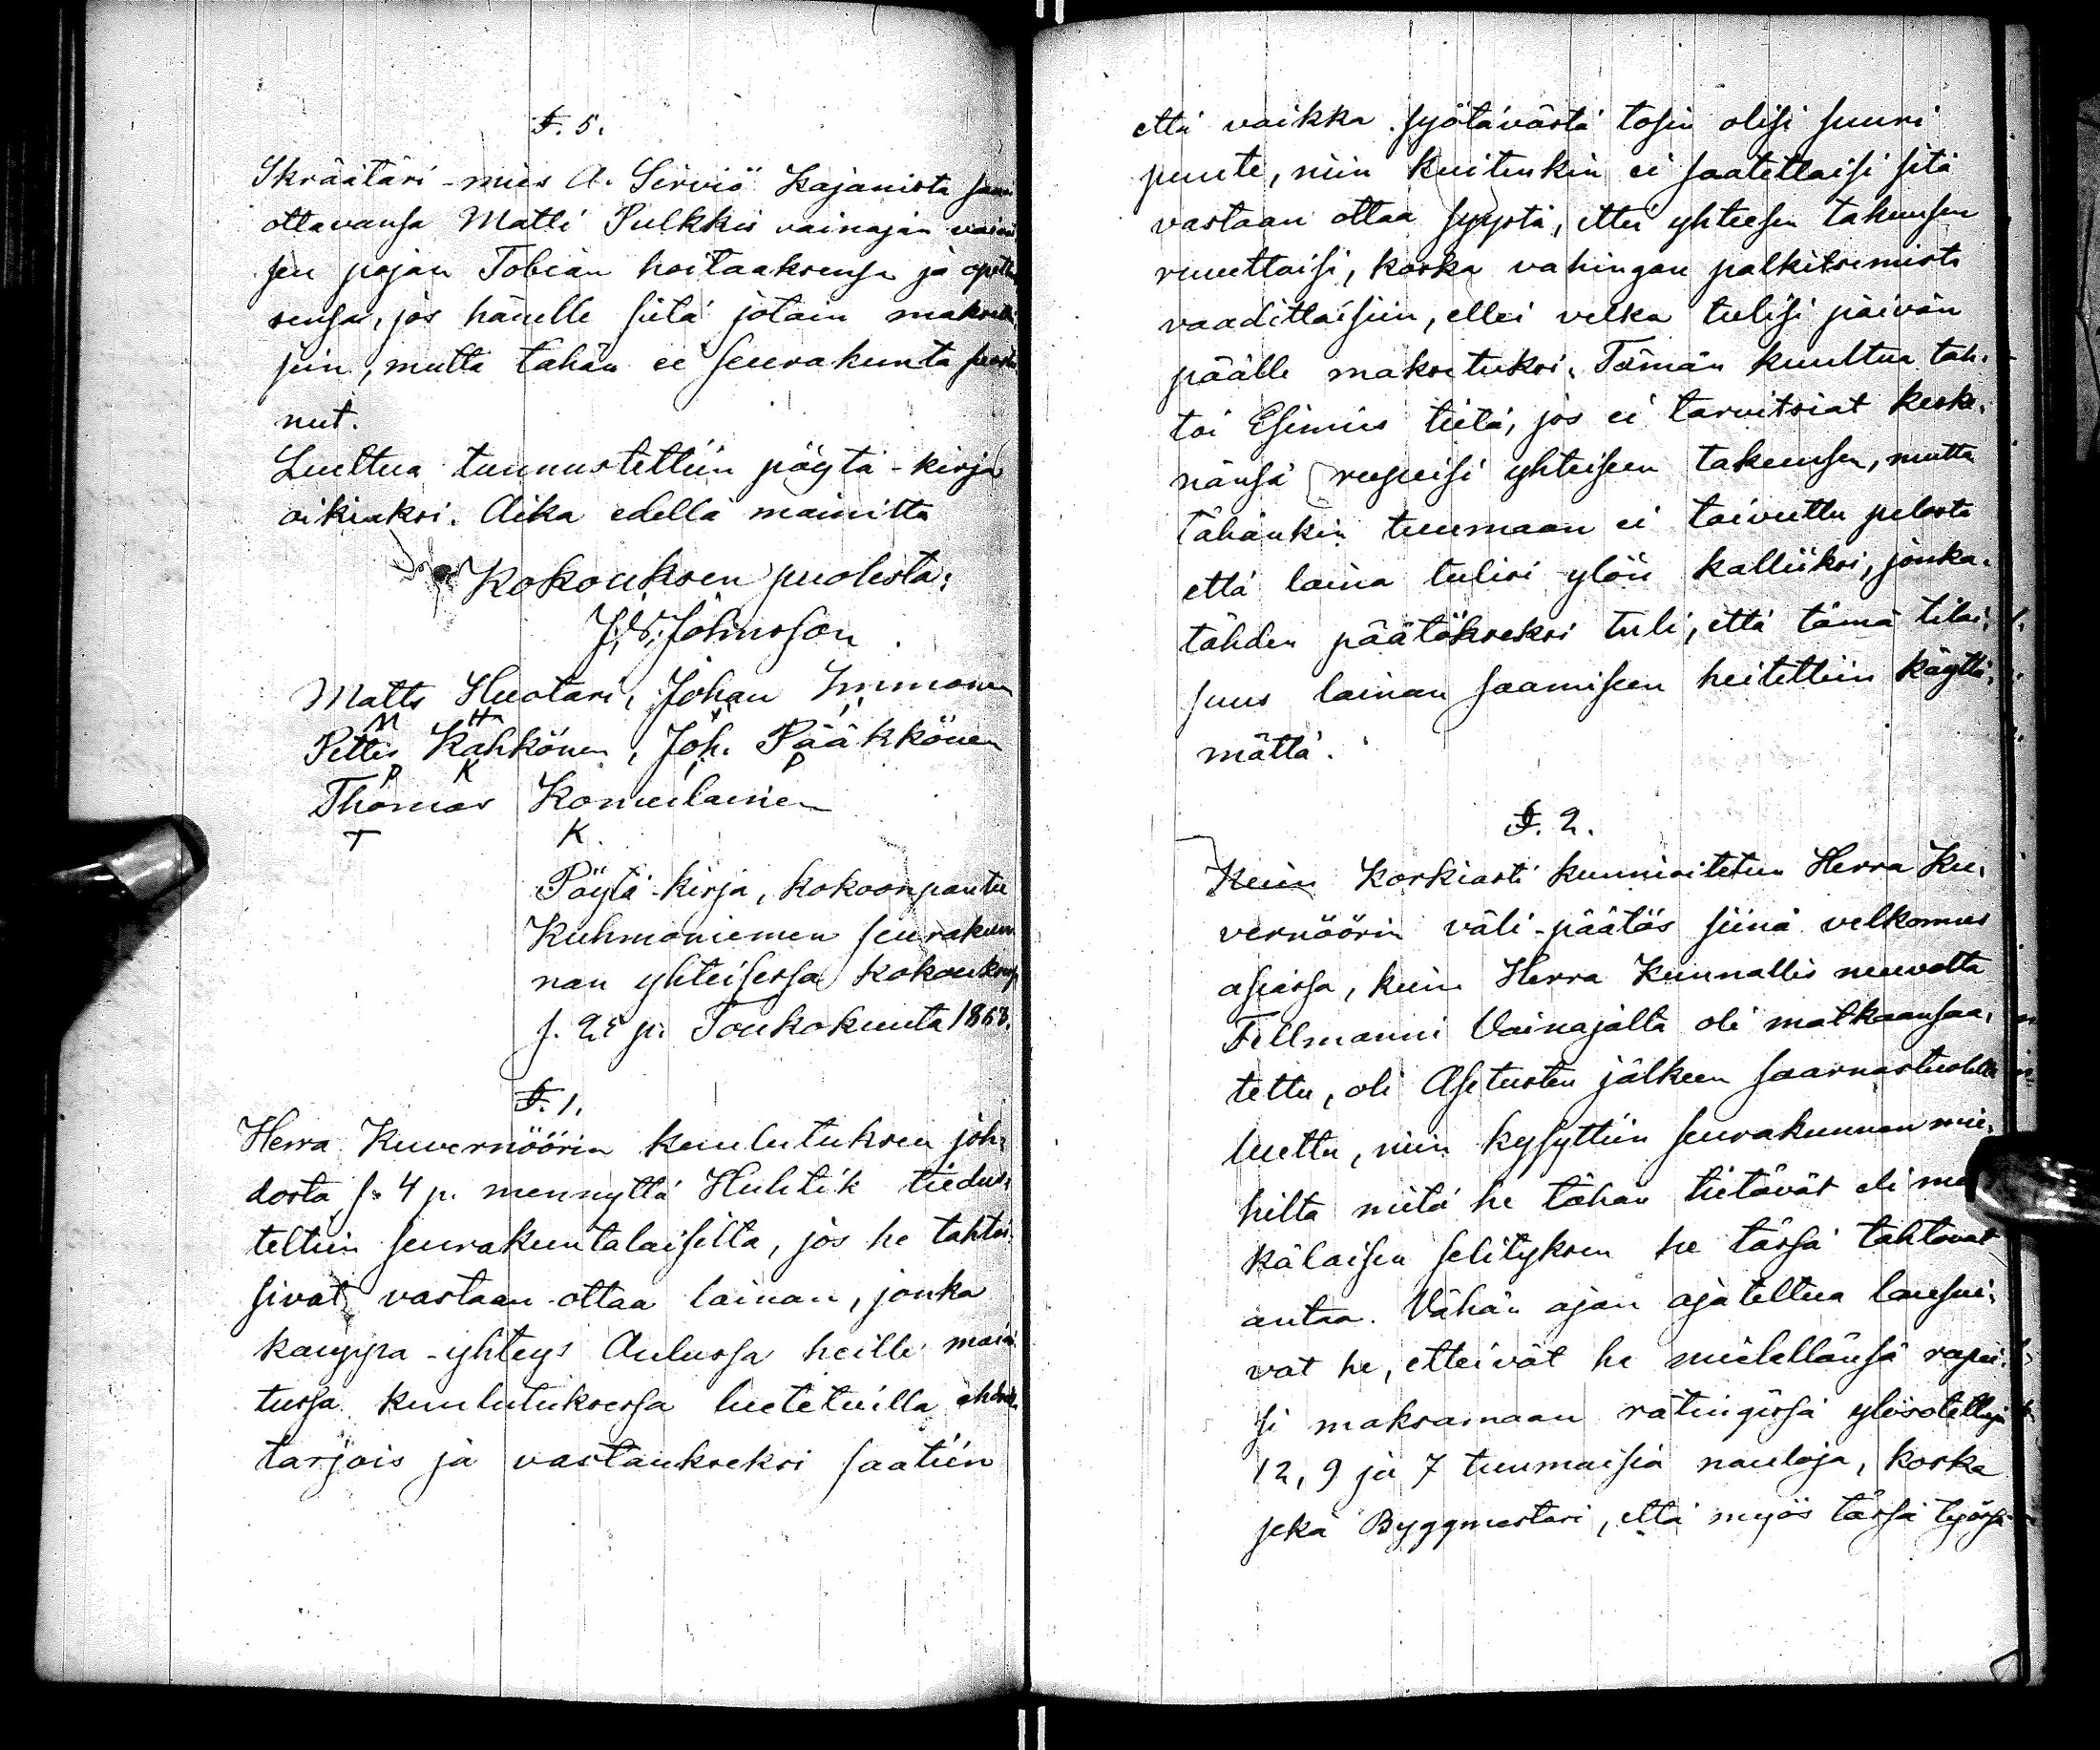 §. 5.
Skräätäri-mies A. Serviö Kajanista sanoi
ottavansa Matti Pulkkis vainajan
sen pojan Tobian hoitaaksensa ja
sensa, jos hänelle siitä jotain
siin, mutta tähän ei seurakunta
nut.
Luettua tunnustettiin pöytä-kirja
oikiaksi. Aika edellä mainittu
Kokouksen puolesta:
Johnsson
Matts Huotari, Johan Immonen
M H
Petter Kähkönen, Joh. Pääkkönen
P K P
Thomas Komulainen
T K
Pöytä-kirja, kokoonpantu
Kuhmoniemen seurakun
nan yhteisessä kokouksessa
s. p. Toukokuuta 1868.
§. 1.
Herra Kuvernöörin kuulutuksen joh-
dosta s. 4 p. mennyttä Huhtik tiedus-
teltiin seurakuntalaisilta, jos he tahtoi-
sivat vastaan-ottaa lainan, jonka
kauppa-yhteys Oulussa heille maini
tussa kuulutuksessa luetetuilla
tarjois ja vastaukseksi saatiin
että vaikka syötävästä tosin olisi suuri
puute, niin kuitenkin ei saatettaisi sitä
vastaan ottaa syystä, ettei yhteesen takuusen
ruvettaisi, koska vahingon palkitsemista
vaadittaisiin, ellei velka tulisi päivän
päälle maksetuksi. Tämän kuultua tah-
toi Esimies tietä, jos ei tarvitsiat keske-
nänsä rupeisi yhteiseen takuusen, mutta
tähänkin tuumaan ei taivuttu pelosta
että laina tulisi ylön kalliiksi, jonka-
tähden päätökseksi tuli, että tämä tilai-
suus lainan saamiseen heitettiin käyttä-
mättä.
§. 2.
Kuin Korkiasti kunnioitetun Herra Ku-
vernöörin väli-päätös siinä velkomus
asiassa, kuin Herra Kunnallis neuvotta
Fellmanni Vainajalta oli matkaansaa-
tettu, oli Asetusten jälkeen saarnastuolilta
luettu, niin kysyttiin seurakunnan mie-
hiltä mitä he tähän tietävät eli
kälaisen selityksen he tässä tahtovat
antaa. Vähän ajan ajateltua lausui-
vat he, etteivät he mielellänsä rupei-
si maksamaan rätingissä ylösotettuja
12, 9 ja 7 tuumaisia nauloja, koska
sekä Byggmestari, että myös tässä työssä